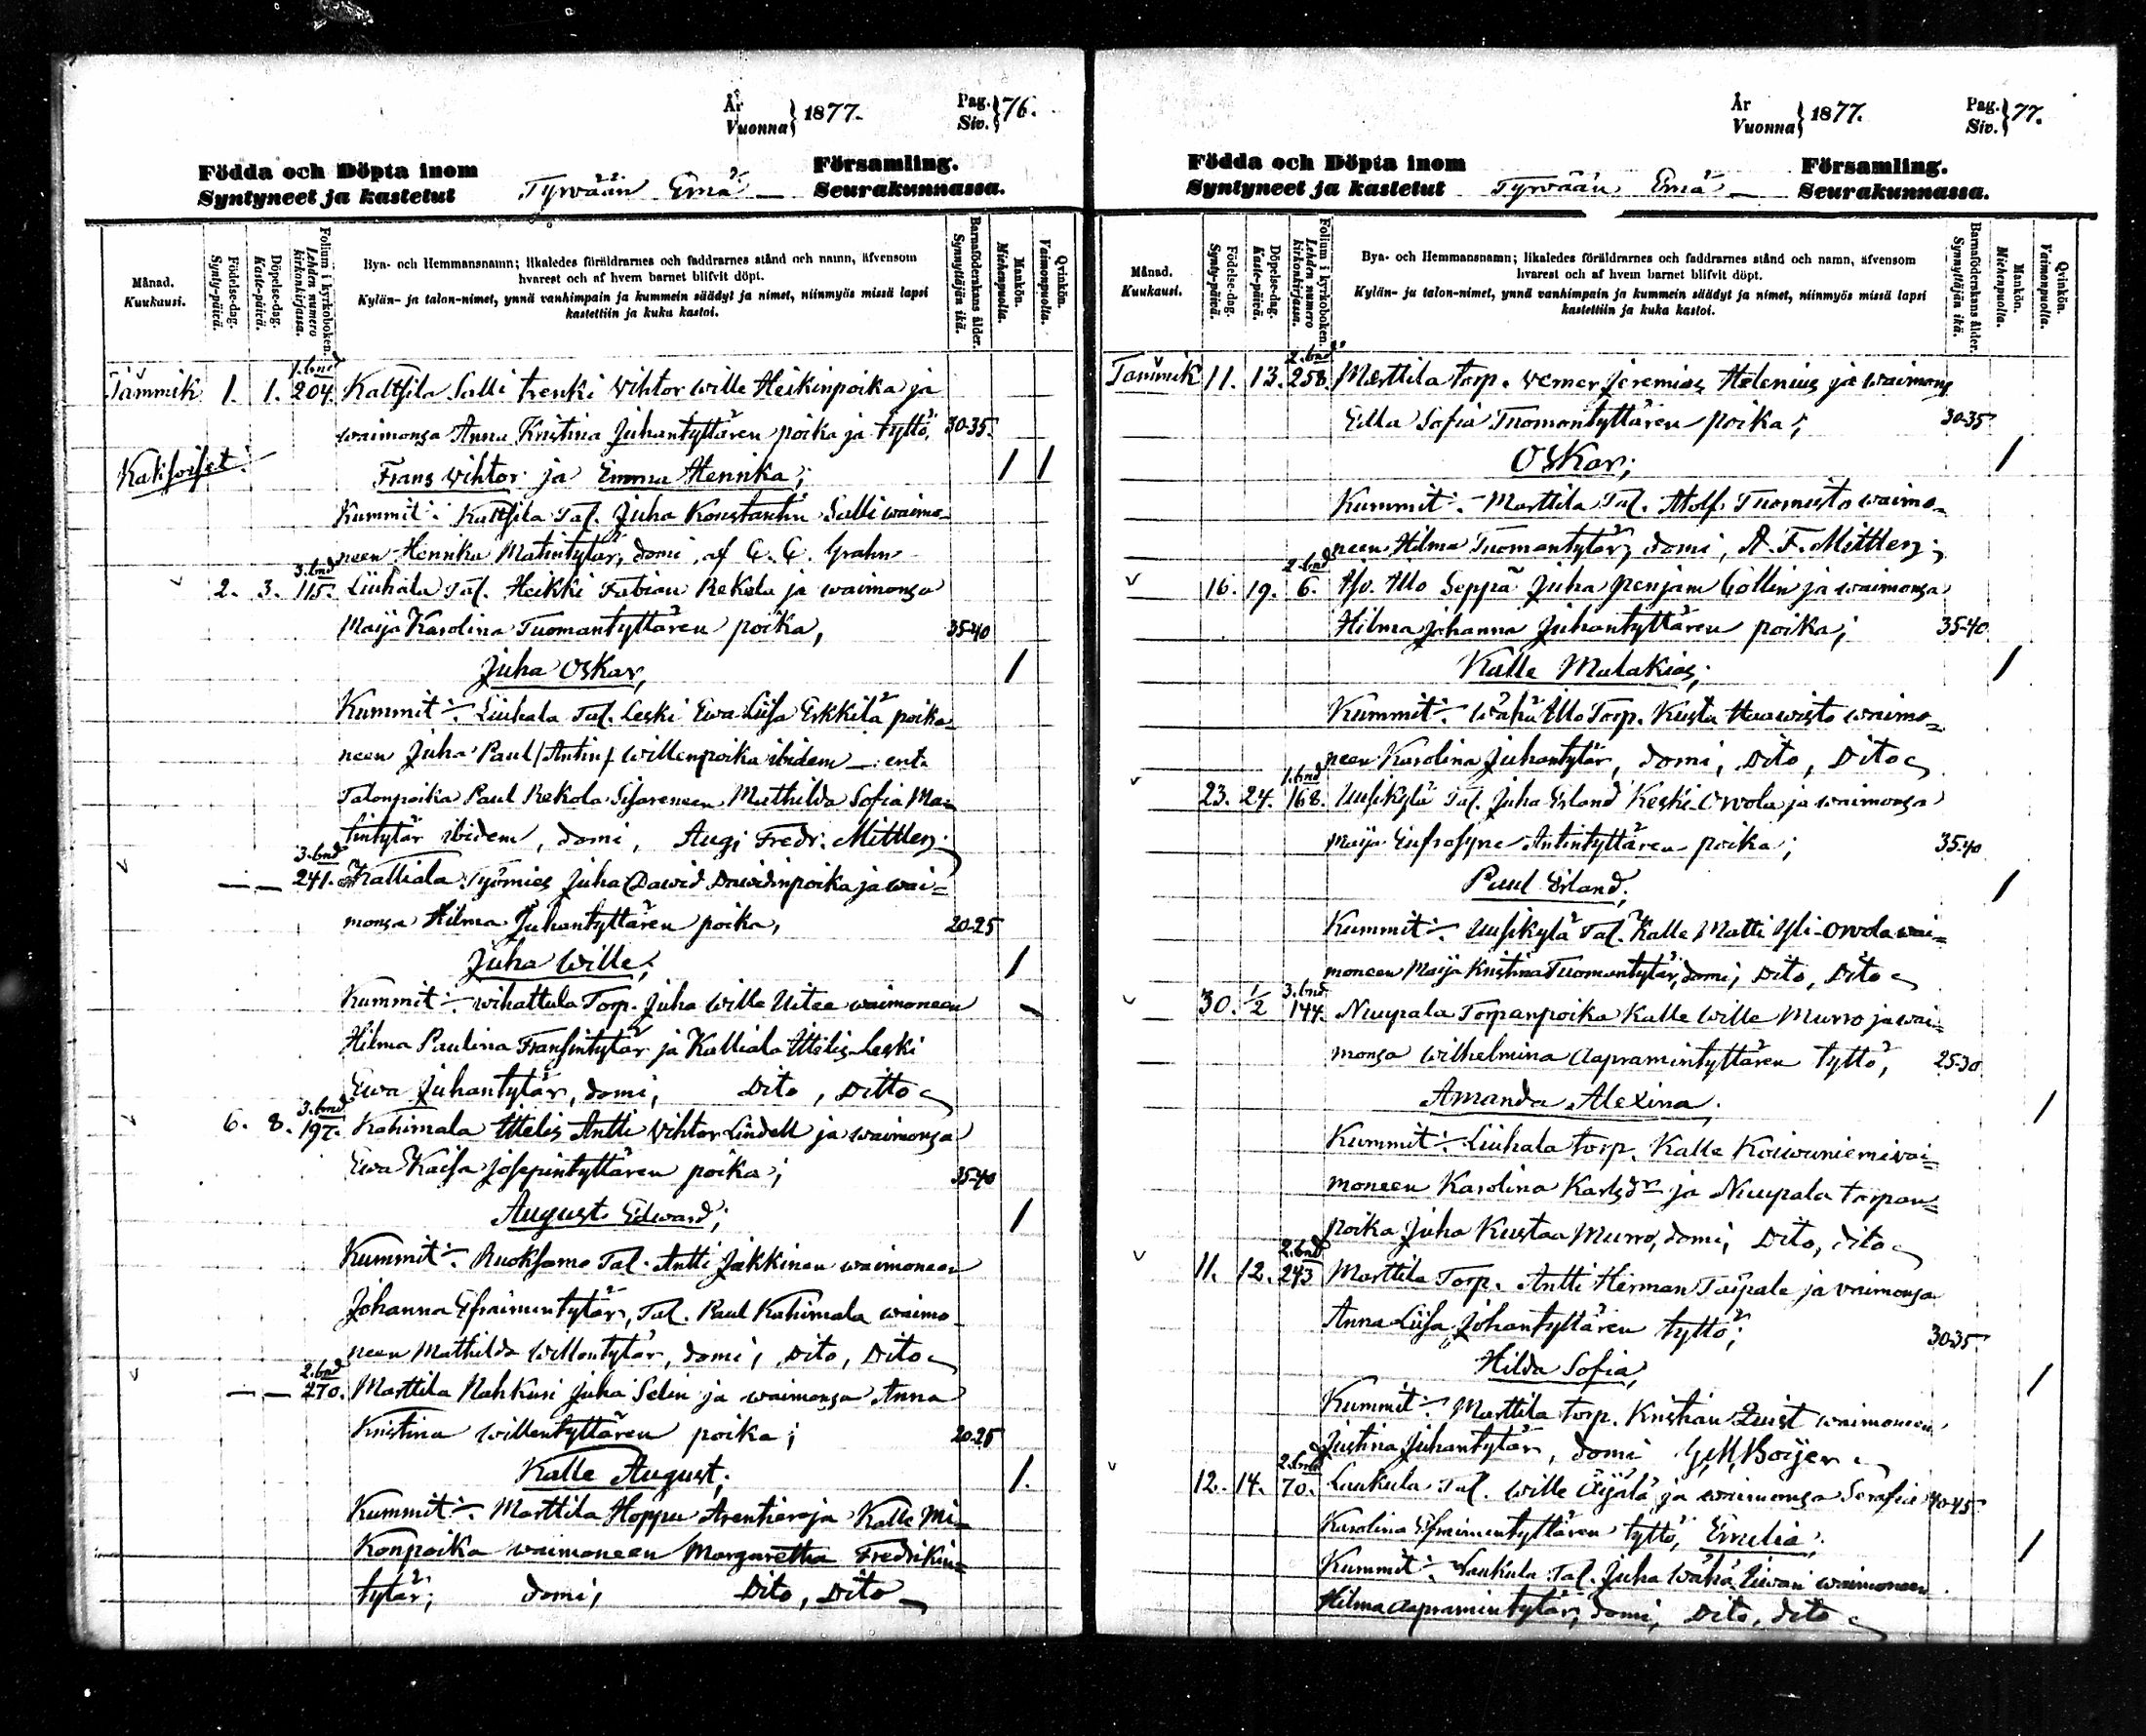 År
Vuonna } 1877.
Pag.
Siv. } 76.
Födda och Döpta inom
Syntyneet ja kastetut
Tyrvään Emä —
Församling.
Seurakunnassa.
Månad.
Kuukausi.
Födelse-dag.
Synty-päivä.
Döpelse-dag.
Kaste-päivä.
Folium i kyrkoboken.
Lehden numero
kirkonkirjassa.
Bya- och Hemmansnamn; likaledes föräldrarnes och faddrarnes stånd och namn, äfvensom
hvarest och af hvem barnet blifvit döpt.
Kylän- ja talon-nimet, ynnä vanhimpain ja kummein säädyt ja nimet, niinmyös missä lapsi
kastettiin ja kuka kastoi.
Barnaföderskans ålder.
Synnyttäjän ikä.
Mankön.
Miehenpuolta.
Qvinkön.
Vaimonpuolta.
1. bnd
Tammik 1. 1. 204. Kaltsila Salli trenki Vihtor Wille Heikinpoika ja
waimonsa Anna Kristina Juhantyttären poika ja tyttö, 30-35.
Kaksoset.
Frans Vihtor ja Emma Hennika; / /
Kummit: Kaltsila Tal. Juha Konstantin Salli waimo-
neen Hennika Matintytär, domi, af C. C. Grahn
3. bnd
2. 3. 115. Liuhala Tal. Heikki Fabian Rekola ja waimonsa
Maija Karolina Tuomantyttären poika, 35-40
Juha Oskar, /
Kummit: Liuhala Tal. Leski Ewa Liisa Erkkilä poika
neen Juha Paul /Antin/ Willenpoika ibidem — ent.
Talonpoika Paul Rekola Sisareneen Mathilda Sofia Ma-
tintytär ibidem, domi, Aug. Fredr. Mittler;
3. bnd
— — 241. Kalliala Työmies Juha Dawid Dawidinpoika ja wai=
monsa Hilma Juhantyttären poika, 20-25
Juha Wille; /
Kummit: Wihattula Torp. Juha Wille Uitee waimoneen
Hilma Paulina Fransintytär ja Kalliala Itselis Leski
Ewa Juhantytär, domi, Dito, Ditto
3. bnd
6. 8. 197. Kahimala Itselis Antti Vihtor Lindell ja waimonsa
Ewa Kaisa Josepintyttären poika; 35-40
August Edward; /
Kummit: Ruoksamo Tal. Antti Jakkinen waimoneen
Johanna Efraimintytär, Tal. Paul Kahimala waimo
neen Mathilda Willentytär, domi, Dito, Dito
2. bnd
— — 270. Marttila Nahkuri Juha Selin ja waimonsa Anna
Kristina Willentyttären poika; 20-25
Kalle August; /.
Kummit: Marttila Hoppu Arentieraja Kalle Mi-
konpoika waimoneen Margaretha Fredrikin=
tytär; domi; Dito, Dito
År
Vuonna } 1877.
Pag.
Siv. } 77.
Födda och Döpta inom
Syntyneet ja kastetut
Tyrvään Emä —
Församling.
Seurakunnassa.
Månad.
Kuukausi.
Födelse-dag.
Synty-päivä.
Döpelse-dag.
Kaste-päivä.
Folium i kyrkoboken.
Lehden numero
kirkonkirjassa.
Bya- och Hemmansnamn; likaledes föräldrarnes och faddrarnes stånd och namn, äfvensom
hvarest och af hvem barnet blifvit döpt.
Kylän- ja talon-nimet, ynnä vanhimpain ja kummein säädyt ja nimet, niinmyös missä lapsi
kastettiin ja kuka kastoi.
Barnaföderskans ålder.
Synnyttäjän ikä.
Mankön.
Miehenpuolta.
Qvinkön.
Vaimonpuolta.
2. bnd
Tammik 11. 13. 258. Marttila Torp. Verner Jeremias Helenius ja waimons
Edla Sofia Tuomontyttären poika; 30-35
Oskar; /
Kummit: Marttila Tal. Atolf Tuomisto waimo-
neen Hilma Tuomantytär, domi, A. F. Mittler;
2. bnd
16. 19. 6. Illo Seppä Juha Penjam Collin ja waimonsa
Hilma Johanna Juhantyttären poika; 35-40.
Kalle Malakias; /
Kummit: Wähä Illo Torp. Kusta Haawisto waimo=
neen Karolina Juhantytär, domi, Dito, Dito
1. bnd
23. 24. 168. Uusikylä Tal. Juha Erland Keski Owola ja waimonsa
Maija Eufrosyne Antintyttären poika; 35-40
Paul Erland; /
Kummit: Uusikylä Tal. Kalle Matti Yli-Owola wai=
moneen Maija Kristina Tuomantytär, domi, Dito, Dito
3. bnd
30. 1/2 144. Nuupala Torpanpoika Kalle Wille Murro ja wai=
monsa Wilhelmina Aapramintyttären tyttö, 25-30
Amanda Alexina; /
Kummit: Liuhala torp. Kalle Koiwuniemi wai=
moneen Karolina Karlsdr ja Nuupala torpan=
poika Juha Kustaa Murro, domi, Dito, dito
2. bnd
11. 12. 243 Marttila Torp. Antti Herman Taipale ja vaimonsa
Anna Liisa Johantyttären tyttö; 30-35
Hilda Sofia, /
Kummit: Marttila torp. Kristian Quist waimoneen
Justina Juhantytär, domi G. M. Boijer
2. bnd
12. 14. 70. Laukula Tal. Wille Äijälä ja waimonsa Serafia 40-45
Karolina Efraimintyttären tyttö, Emelia; /
Kummit: Laukula Tal. Juha Wähä Eiwari waimoneen
Hilma Aapramintytär, domi, Dito, dito